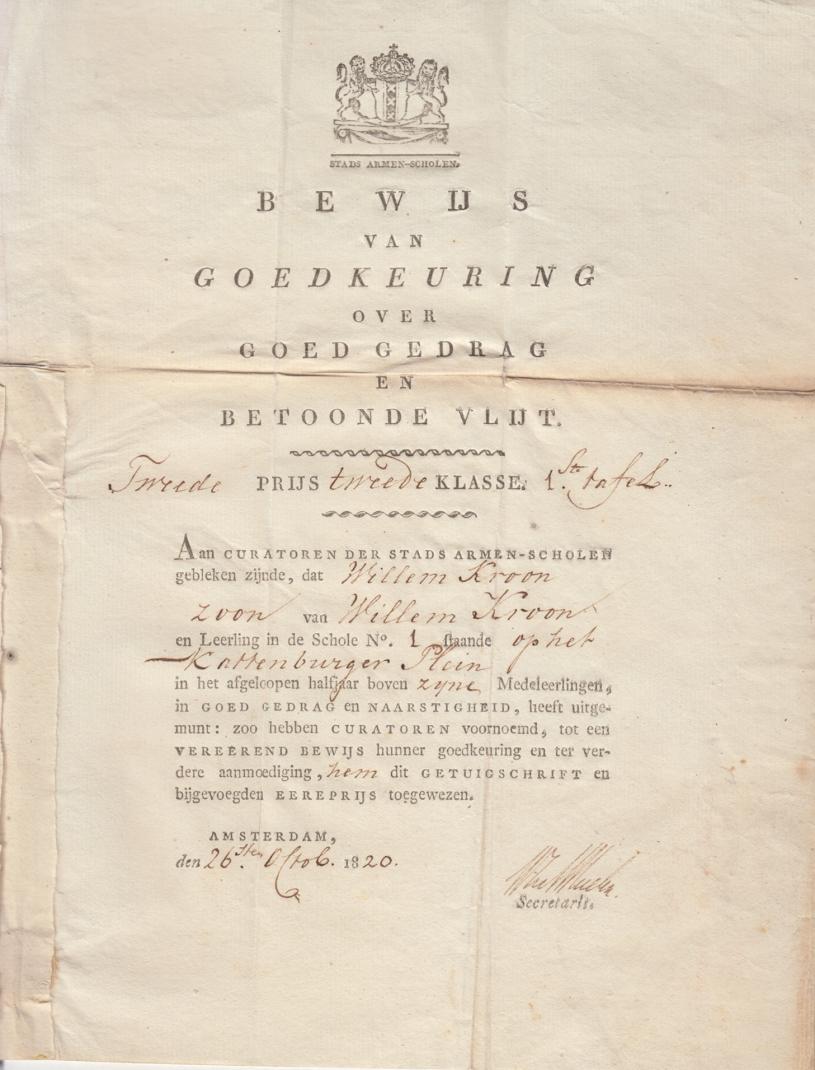 STADS ARMEN-SCHOLEN.
BEWIJS
VAN
GOEDKEURING
OVER
GOED GEDRAG
EN
BETOONDE VLIJT.
Tweede PRIJS tweede KLASSE. 1.ste tafel.
Aan CURATOREN DER STADS ARMEN-SCHOLEN
gebleken zijnde, dat Willem Kroon
zoon van Willem Kroon
en Leerling in de Schole No. 1 staande op het
Kattenburger Plein
in het afgeloopen halfjaar boven zyne Medeleerlingen,
in GOED GEDRAG en NAARSTIGHEID, heeft uitge-
munt: zoo hebben CURATOREN voornoemd, tot een
VEREËREND BEWIJS hunner goedkeuring en ter ver-
dere aanmoediging, hem dit GETUIGSCHRIFT en
bijgevoegden EEREPRIJS toegewezen.
AMSTERDAM,
den 26.sten Octob. 1820.
Secretaris.